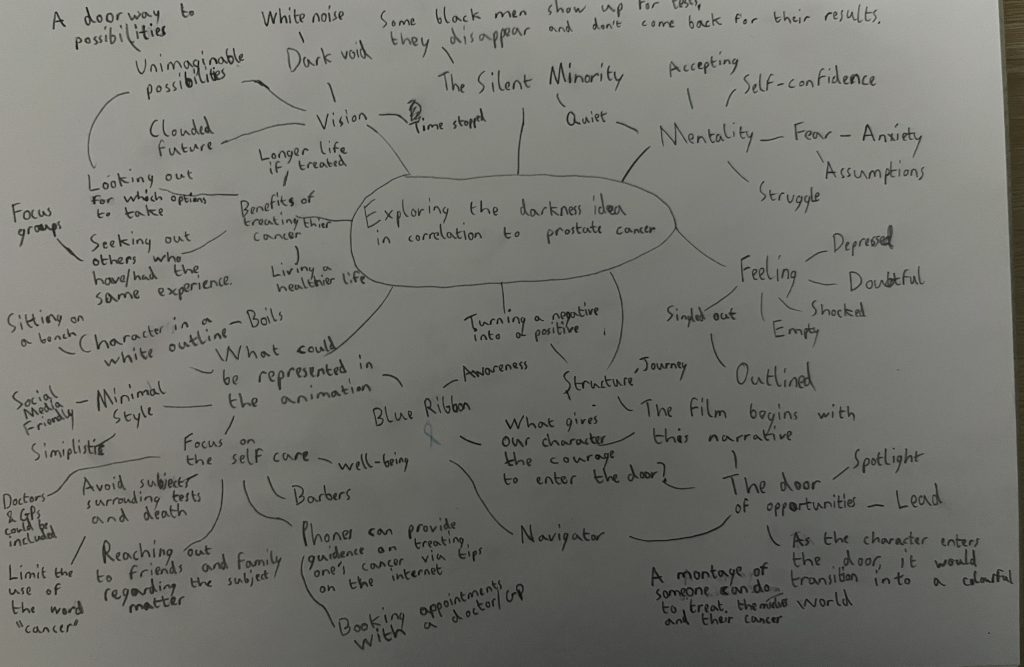 A doorway to
possibilities
White noise
Some black men show up for tests,
they disappear and don't come back for their results.
Dark void
The Silent Minority
Unimaginable
possibilities
Vision
Time stopped
Quiet
Accepting
Self-confidence
Mentality
Fear - Anxiety
Assumptions
Struggle
Clouded
future
Longer life
if treated
Looking out
for which options
to take
Benefits of
treating thier
cancer
Focus
groups
Seeking out
others who
have/had the
same experience.
Living a
healthier life
Exploring the darkness idea
in correlation to prostate cancer
Feeling
Depressed
Doubtful
Shocked
Empty
Singled out
Outlined
Sitting on
a bench
Character in a
white outline - Boils
What could
be represented in
the animation
Turning a negative
into a positive
Structure
Journey
Awareness
Blue Ribbon
What gives
our character
the courage
to enter the door?
The film begins with
this narrative
Social
Media
Friendly
Minimal
Style
Simiplistic
Focus on
the self care
well-being
Barbers
The door
of opportunities
Spotlight
Lead
Navigator
As the character enters
the door, it would
transition into a colourful
world
A montage of
someone can do
to treat
and their cancer
Doctors
& GPs
could be
included
Avoid subjects
surrouding tests
and death
Limit the
use of
the word
"cancer"
Reaching out
to friends and family
regarding the subject
matter
Phones can provide
guidance on treating
one's cancer via tips
on the internet
Booking appointments
with a doctor/GP